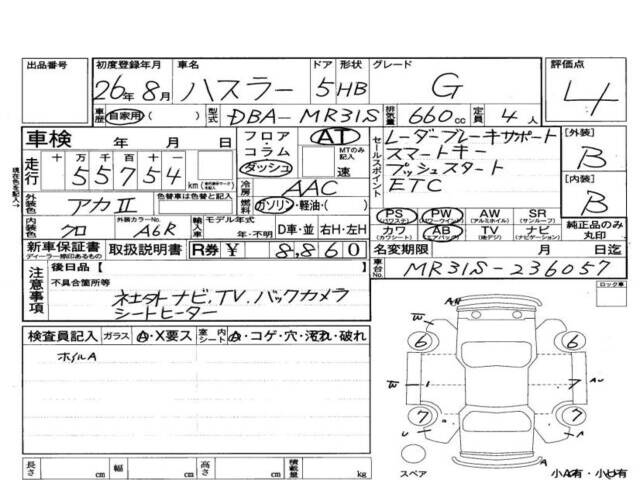 出品番号 初度登録年月 車名 ドア 形状 グレード 評価点
26年8月 ハスラー 5 HB G 4
車歴 自家用( ) 型式 DBA-MR31S 排気量 660cc 定員 4人
車検 年 月 日 フロア・コラム・ダッシュ AT MTのみ記入 速
現在色を記入→
走行 十万千百十一 55754 km
冷房 AAC
燃料 ガソリン・軽油・( )
外装色 アカⅡ 色替車は色替と記入
内装色 クロ 外装カラーNo. A6R 輸入車 モデル年式 年・不明 D車・並 右H・左H
セールスポイント
レーダーブレーキサポート
スマートキー
プッシュスタート
ETC
[外装] B
[内装] B
PS (パワステ) PW (パワーウインド) AW (アルミホイル) SR (サンルーフ)
カワ (カワシート) AB (エアバック) TV (地デジ) ナビ (ナビゲーション)
純正品のみ丸印
新車保証書 ディーラー捺印あるもの 取扱説明書 R券 ¥ 8,860
名変期限 月 日迄
車台No. MR31S-236057
ロック車
注意事項
後日品[ ]
不具合箇所等
社外ナビ.TV.バックカメラ
シートヒーター
検査員記入 ガラス A・X要ス 室内シート A・コゲ・穴・汚れ・破れ
ホイルA
W 6 6
W 1 7 AU
7 7
U
スペア
長さ cm 幅 cm 高さ cm 積載量 kg
小A有・小U有